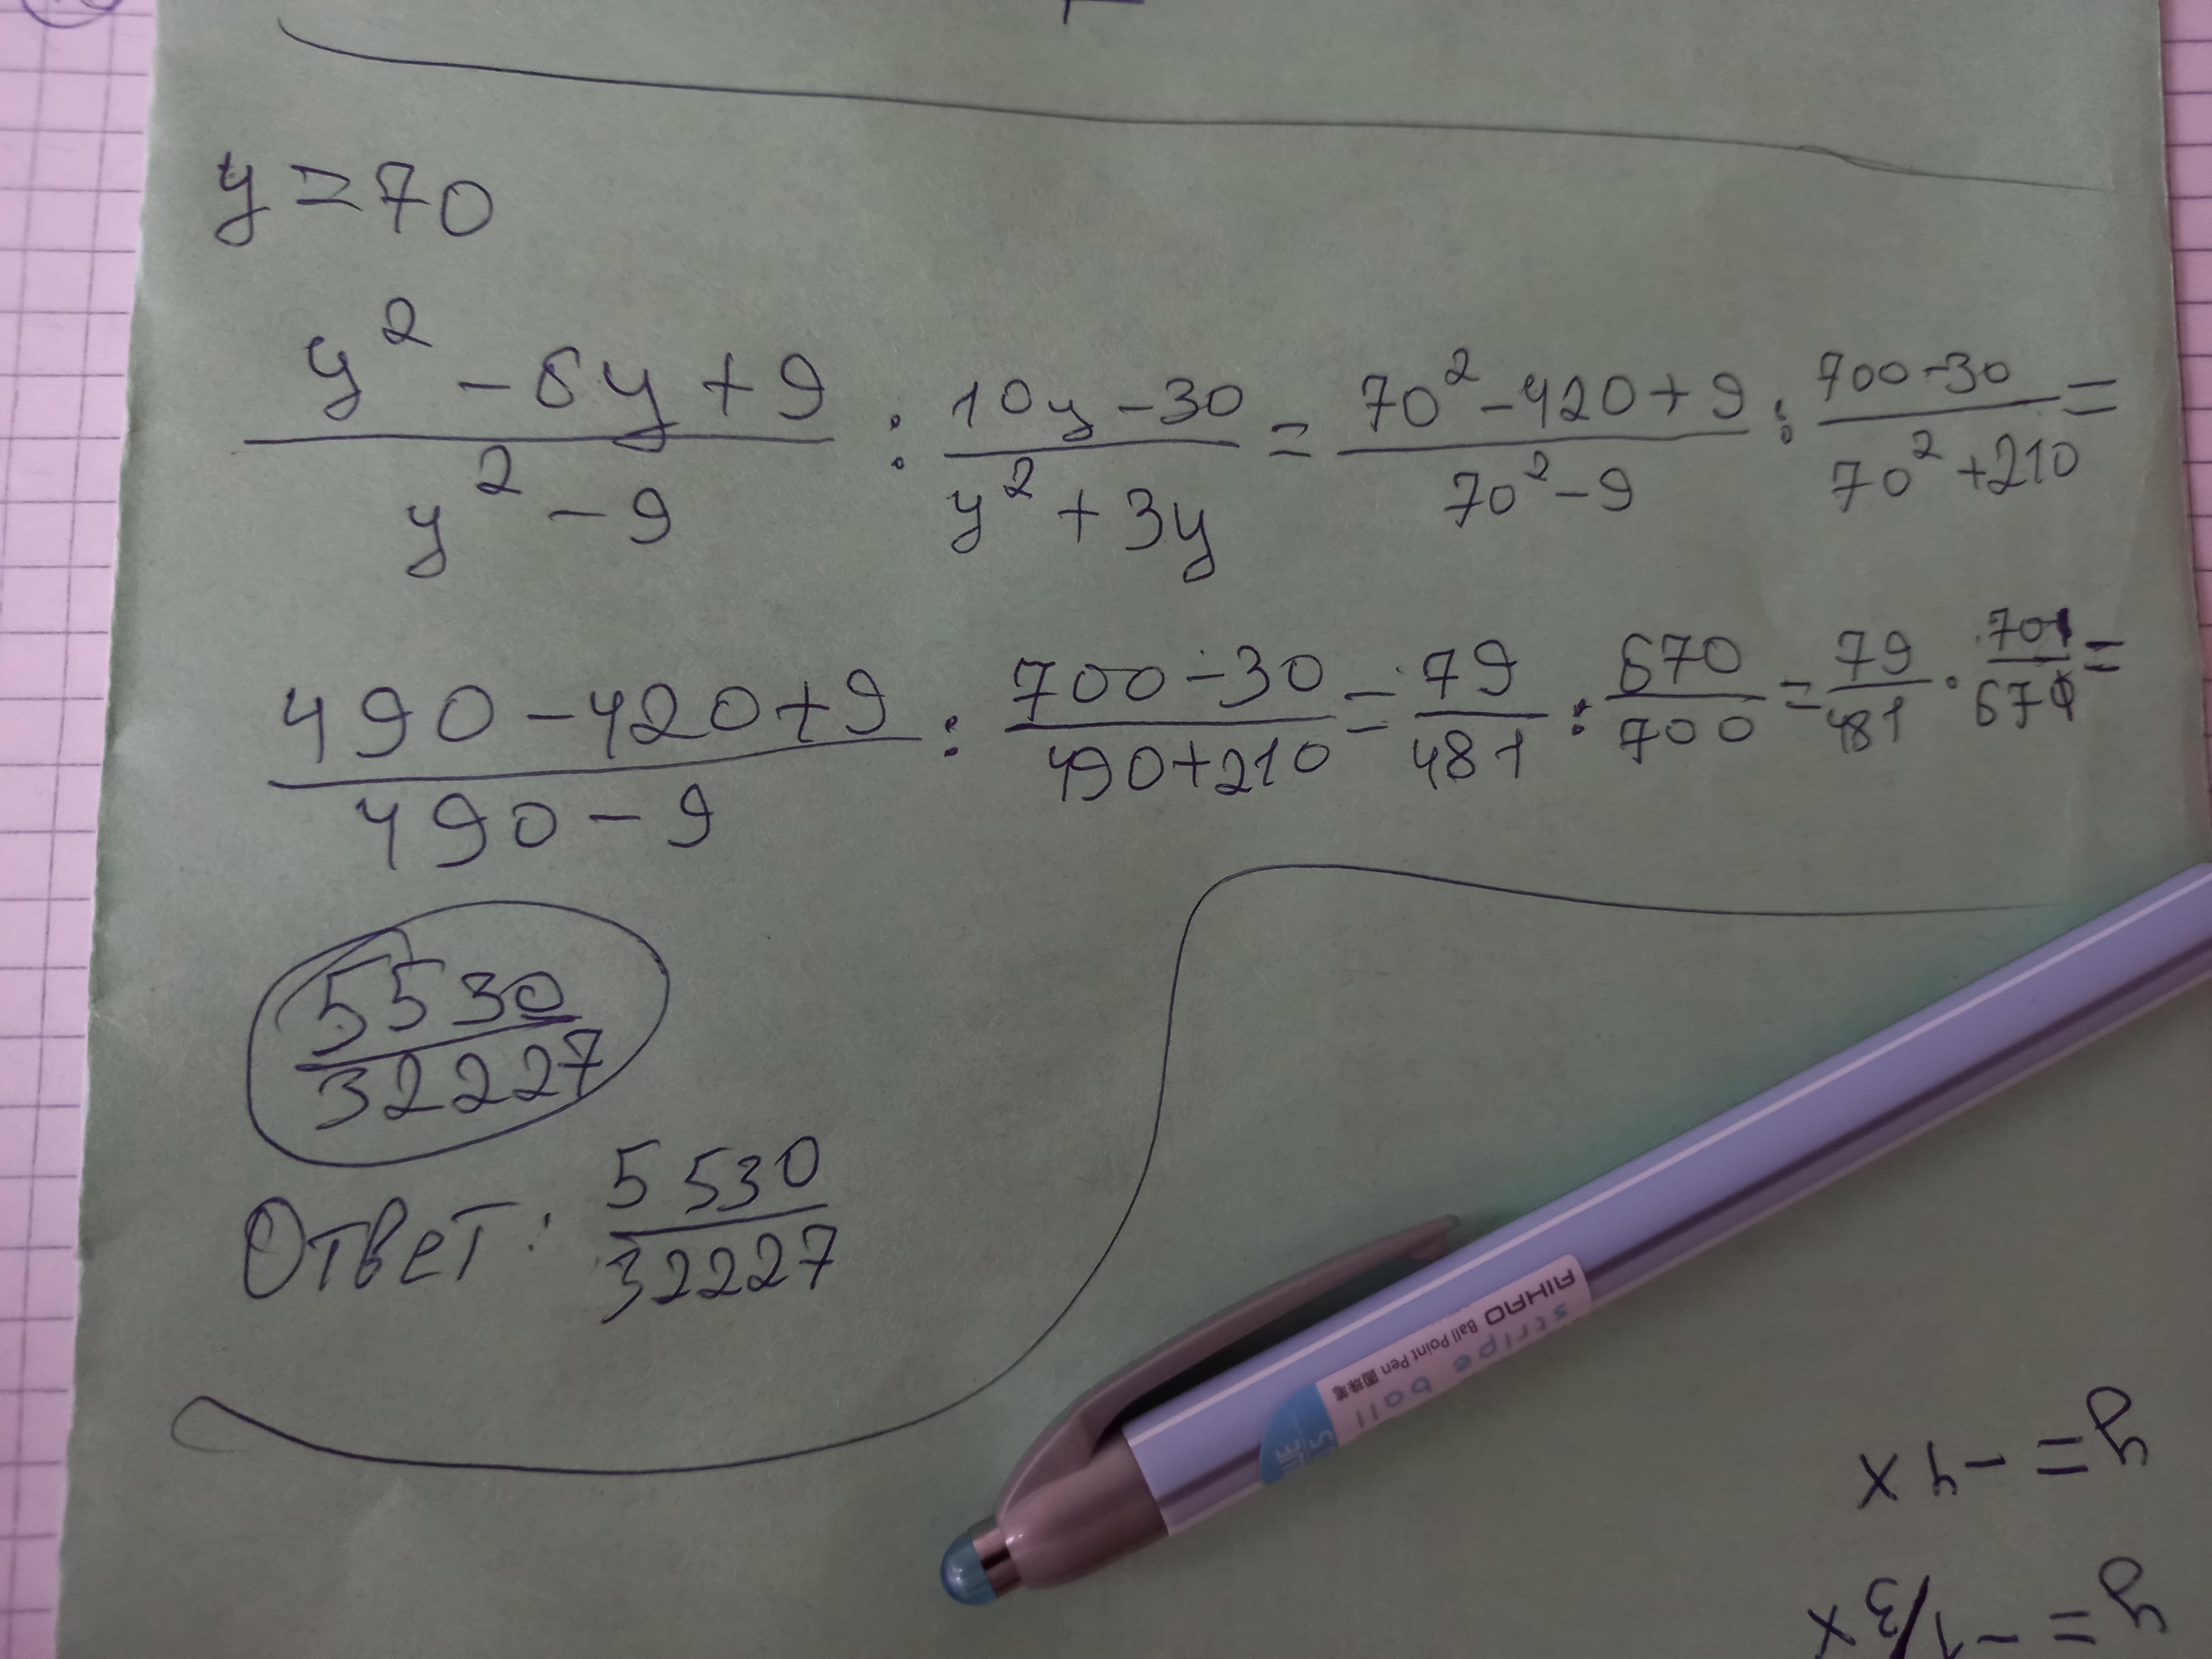 y = 70
y² - 6y + 9 / y² - 9 : 10y - 30 / y² + 3y = 70² - 420 + 9 / 70² - 9 : 700 - 30 / 70² + 210 =
490 - 420 + 9 / 490 - 9 : 700 - 30 / 490 + 210 = 79 / 481 : 670 / 700 = 79 / 481 · 700 / 670 =
5530 / 32227
Ответ: 5530 / 32227
AIHAO Ball Point Pen 圆珠笔
stripe ball
y = -4x
y = -1/3x